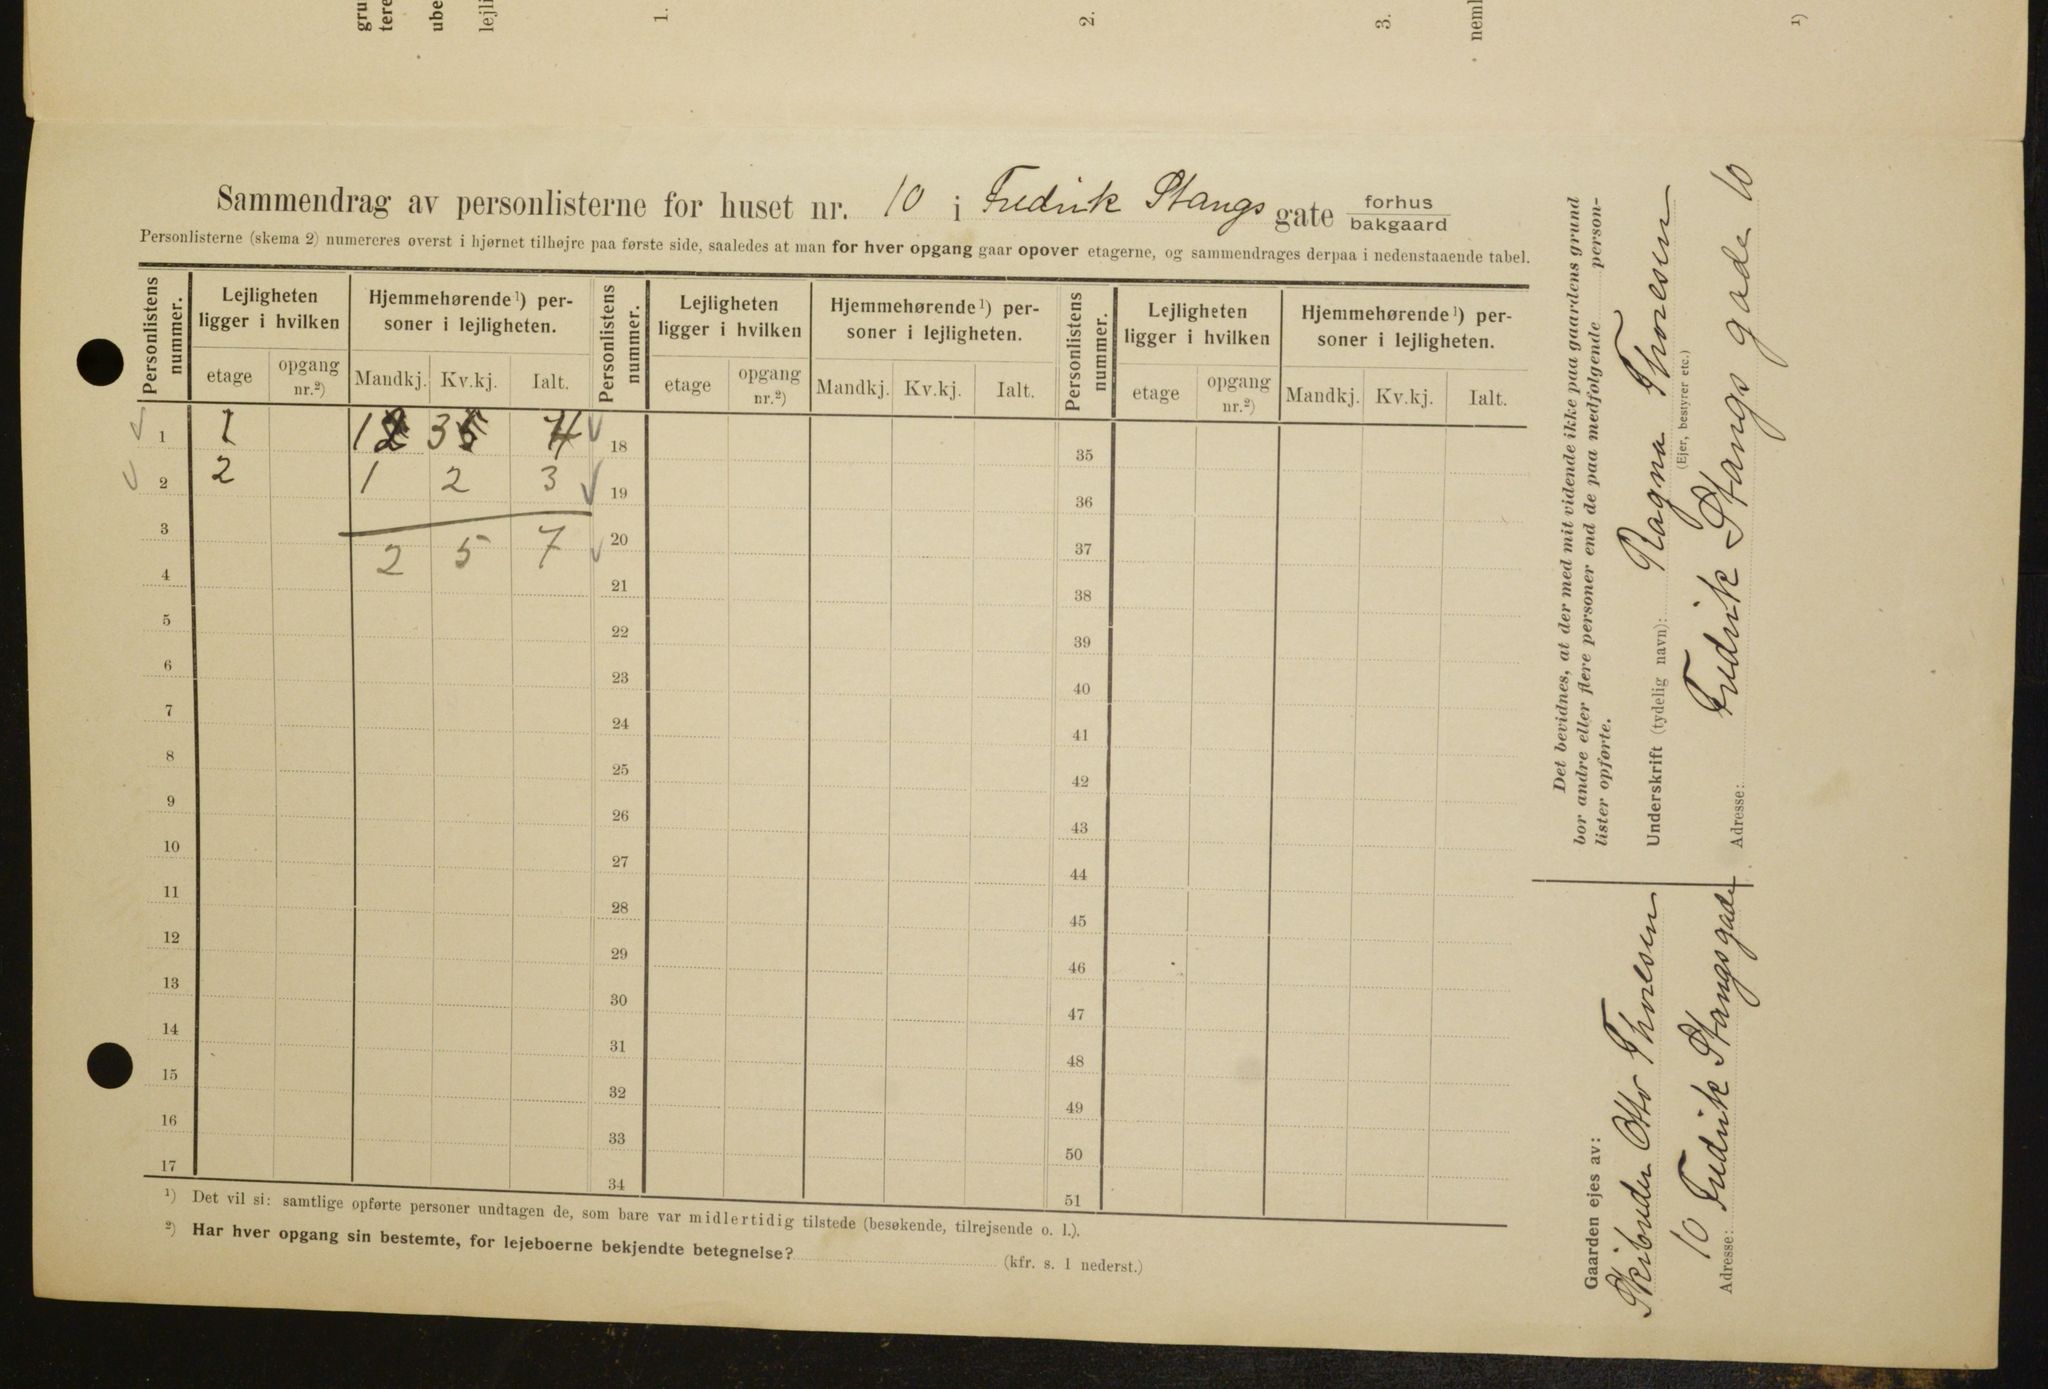 gru
tere
ube
lejli
1.
2.
3.
neml
1)
Sammendrag av personlisterne for huset nr. 10 i Fredrik Stangs gate forhus
bakgaard
Personlisterne (skema 2) numereres øverst i hjørnet tilhøjre paa første side, saaledes at man for hver opgang gaar opover etagerne, og sammendrages derpaa i nedenstaaende tabel.
Personlistens nummer. Lejligheten ligger i hvilken Hjemmehørende 1) personer i lejligheten. Personlistens nummer. Lejligheten ligger i hvilken Hjemmehørende 1) personer i lejligheten. Personlistens nummer. Lejligheten ligger i hvilken Hjemmehørende 1) personer i lejligheten.
etage opgang nr.2) Mandkj. Kv.kj. Ialt. etage opgang nr.2) Mandkj. Kv.kj. Ialt. etage opgang nr.2) Mandkj. Kv.kj. Ialt.
1 1 1 3 4 18 35
2 2 1 2 3 19 36
3 2 5 7 20 37
4 21 38
5 22 39
6 23 40
7 24 41
8 25 42
9 26 43
10 27 44
11 28 45
12 29 46
13 30 47
14 31 48
15 32 49
16 33 50
17 34 51
1) Det vil si: samtlige opførte personer undtagen de, som bare var midlertidig tilstede (besøkende, tilrejsende o. l.).
2) Har hver opgang sin bestemte, for lejeboerne bekjendte betegnelse? (kfr. s. 1 nederst.)
Det bevidnes, at der med mit vidende ikke paa gaardens grund
bor andre eller flere personer end de paa medfølgende person-
lister opførte.
Underskrift (tydelig navn): Ragna Thoresen
(Ejer, bestyrer etc.)
Adresse: Fredrik Stangs gade 10
Gaarden ejes av:
Skibsreder Otto Thoresen
Adresse: 10 Fredrik Stangsgade